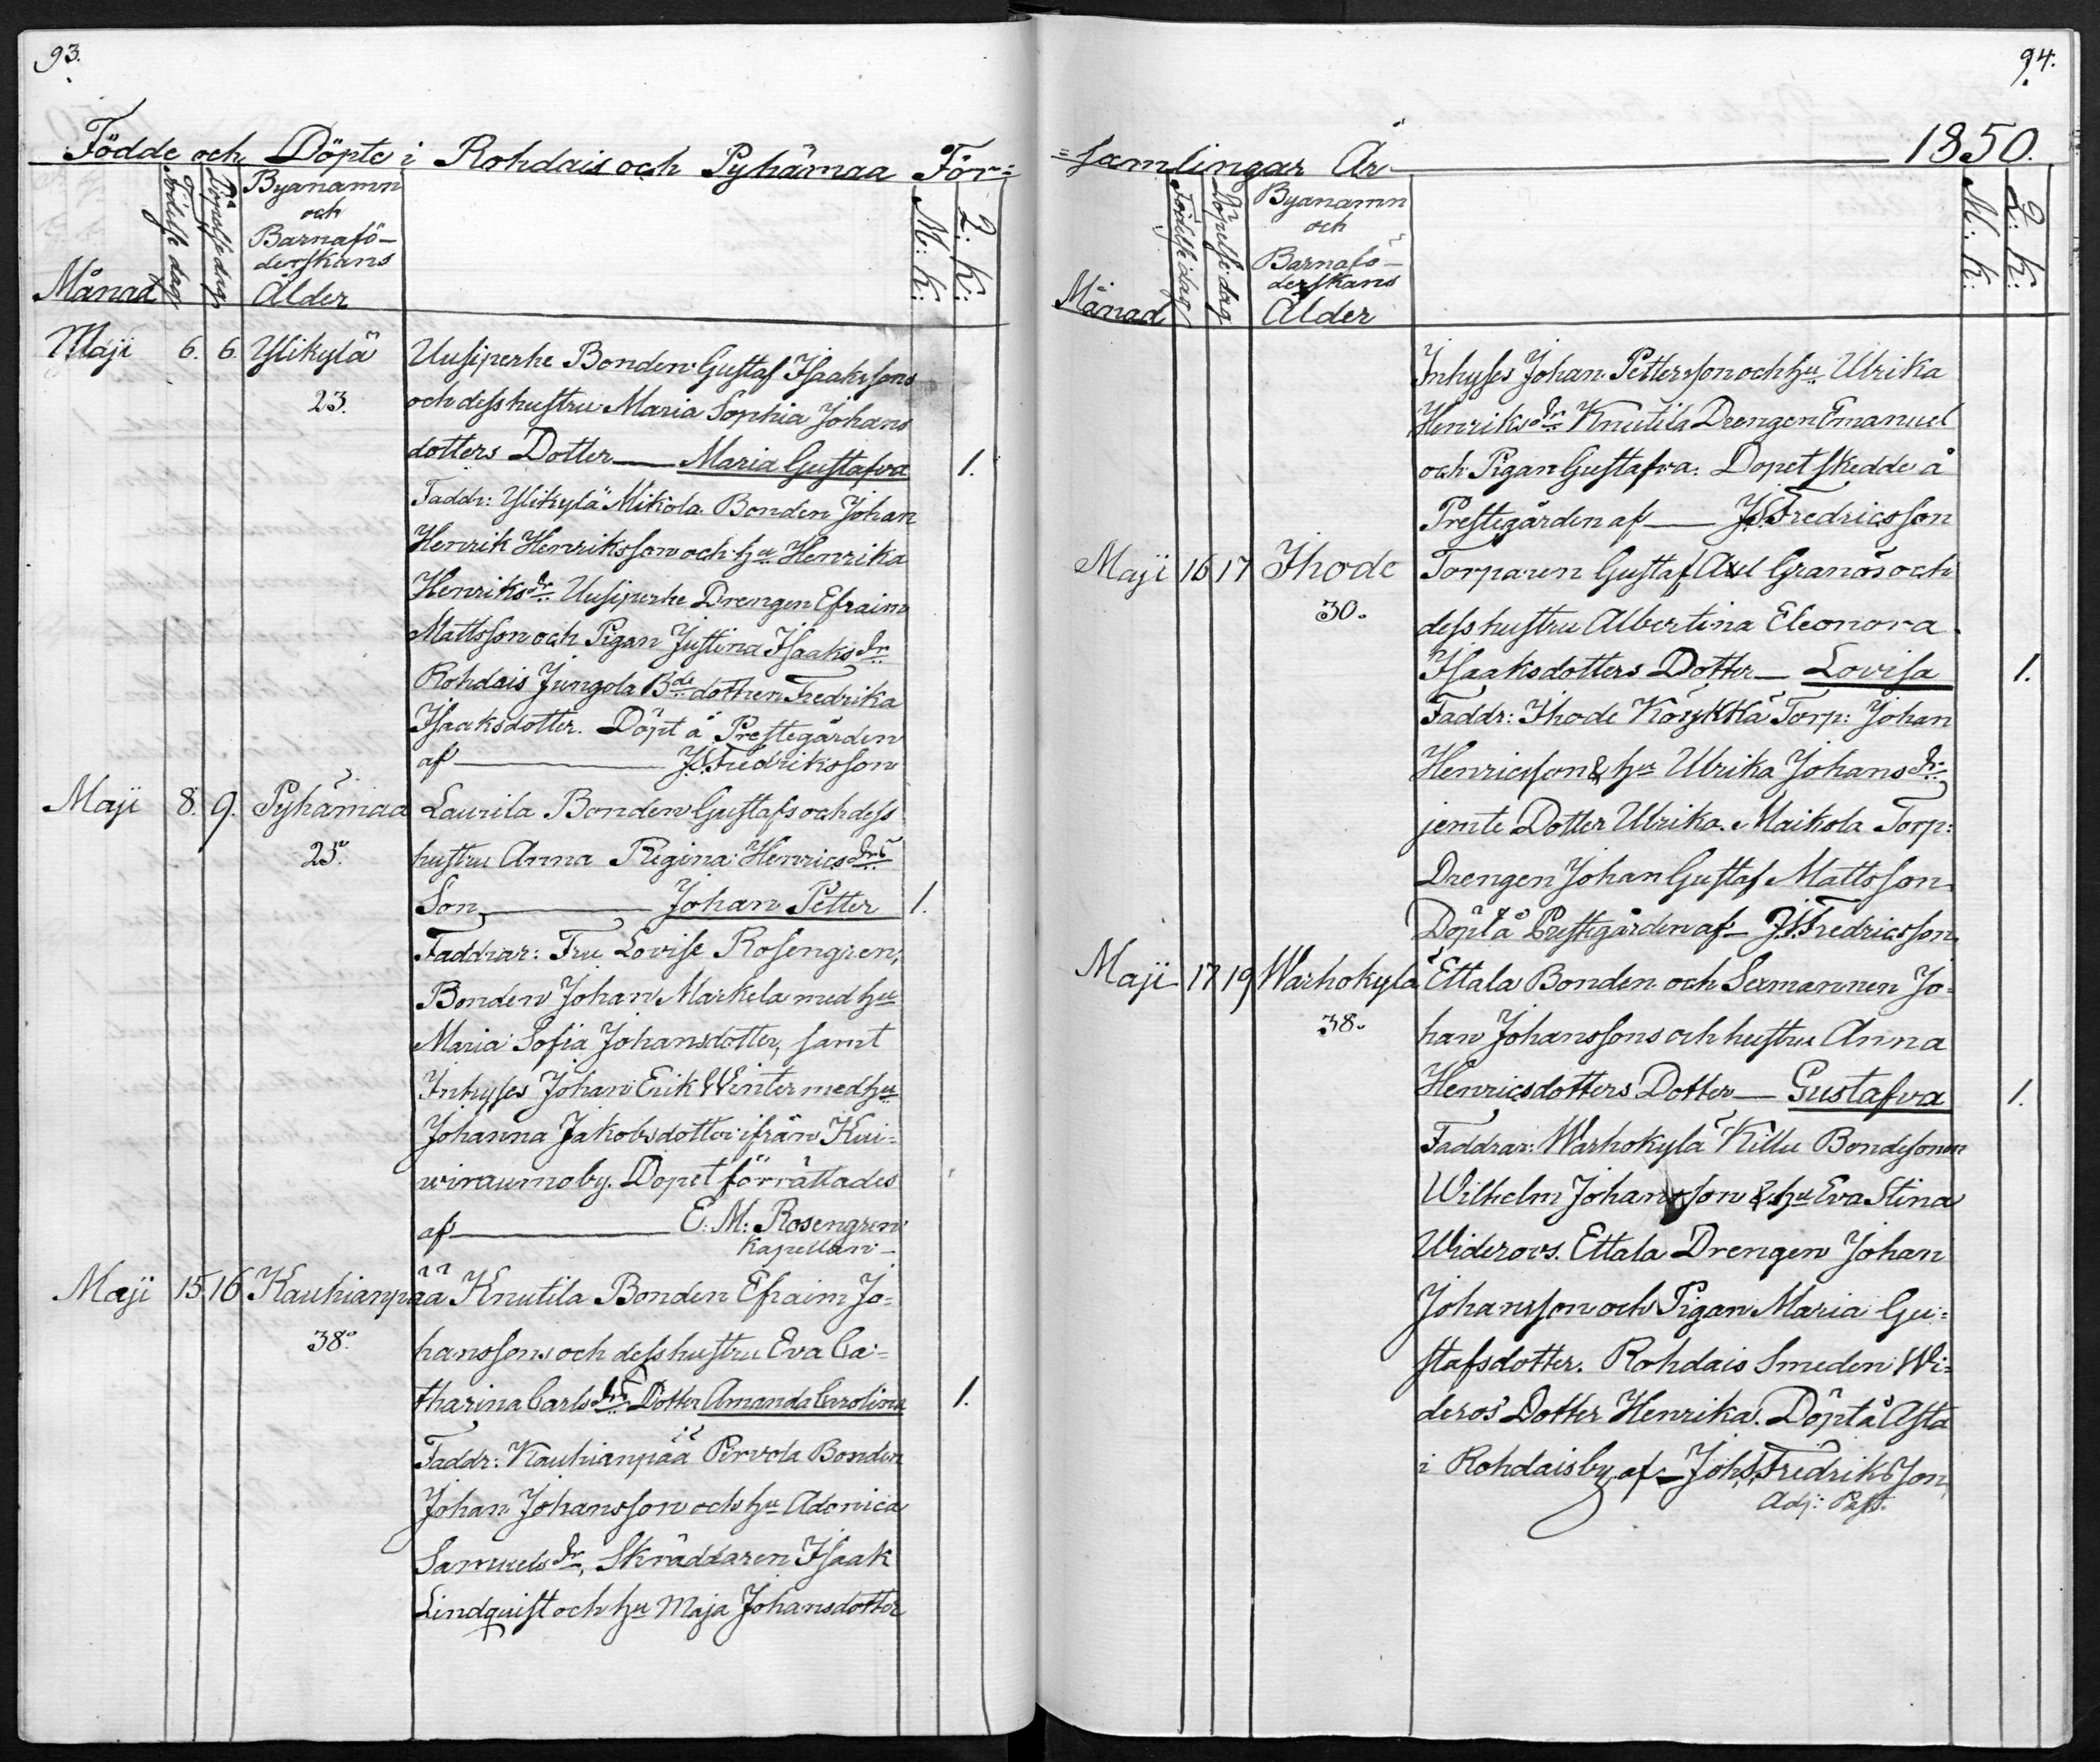 93.
Födde och Döpte i Rohdais och Pyhämaa För=
Månad
Födelse dag
Döpelse dag
Byanamn
och
Barnafö-
derskans
Ålder
M: k:
Q: k:
Maji 6. 6. Ylikylä Uusiperhe Bonden Gustaf Isaakssons
23. och dess hustru Maria Sophia Johans
dotters Dotter — Maria Gustafva 1.
Faddr: Ylikylä Mikola Bonden Johan
Henrik Henriksson och hu Henrika
Henriksdr Uusiperhe Drengen Efraim
Mattsson och Pigan Justina Isaaksdr
Rohdais Jungola Bde dottren Fredrika
Isaaksdotter. Döpt å Prestegården
af — J.S. Fredriksson
Maji 8. 9. Pyhämaa Laurila Bonden Gustafs och dess
25. hustru Anna Regina Henricsdrs
Son — Johan Petter 1.
Faddrar: Fru Lovise Rosengren,
Bonden Johan Markela med hu
Maria Sofia Johansdotter, samt
Inhyses Johan Erik Winter med hu
Johanna Jakobsdotter ifrån Kui=
wiraumo by. Dopet förrättades
af — E: M: Rosengren
Kapellan —
Maji 15 16 Kauhianpää Knutila Bonden Efraim Jo=
38. hanssons och dess hustru Eva Ca=
tharina Carlsdrs Dotter Amanda Carolina 1.
Faddr: Kauhianpää Pirvola Bonden
Johan Johansson och hu Adonica
Samuelsdr, Skräddaren Isaak
Lindquist och hu Maja Johansdotter
94.
=samlingar År — 1850.
Månad
Födelse dag
Döpelse dag
Byanamn
och
Barnafö-
derskans
Ålder
M: k:
Q: k:
Inhyses Johan Pettersson och hu Ulrika
Henriksdr Knutila Drengen Emanuel
och Pigan Gustafva. Dopet skedde å
Prestegården af — J.S. Fredricsson
Maji 16 17 Ihode Torparen Gustaf Axel Granös och
30. dess hustru Albertina Eleonora
Isaaksdotters Dotter — Lovisa 1.
Faddr: Ihode Köykkä Torp: Johan
Henricsson & hu Ulrika Johansdr
jemte Dotter Ulrika. Maikola Torp:
Drengen Johan Gustaf Mattsson
Döpt å Prestegården af — J.S. Fredricsson
Maji 17 19 Warhokylä Ettala Bonden och Sexmannen Jo=
38. han Johanssons och hustru Anna
Henricsdotters Dotter — Gustafva 1.
Faddrar: Warhokylä Killu Bondesonen
Wilhelm Johansson & hu Eva Stina
Wideroos. Ettala Drengen Johan
Johansson och Pigan Maria Gu=
stafsdotter. Rohdais Smeden Wi=
deros Dotter Henrika. Döpt å Asta
i Rohdais by af — Joh. S. Fredriksson
Adj: Past.